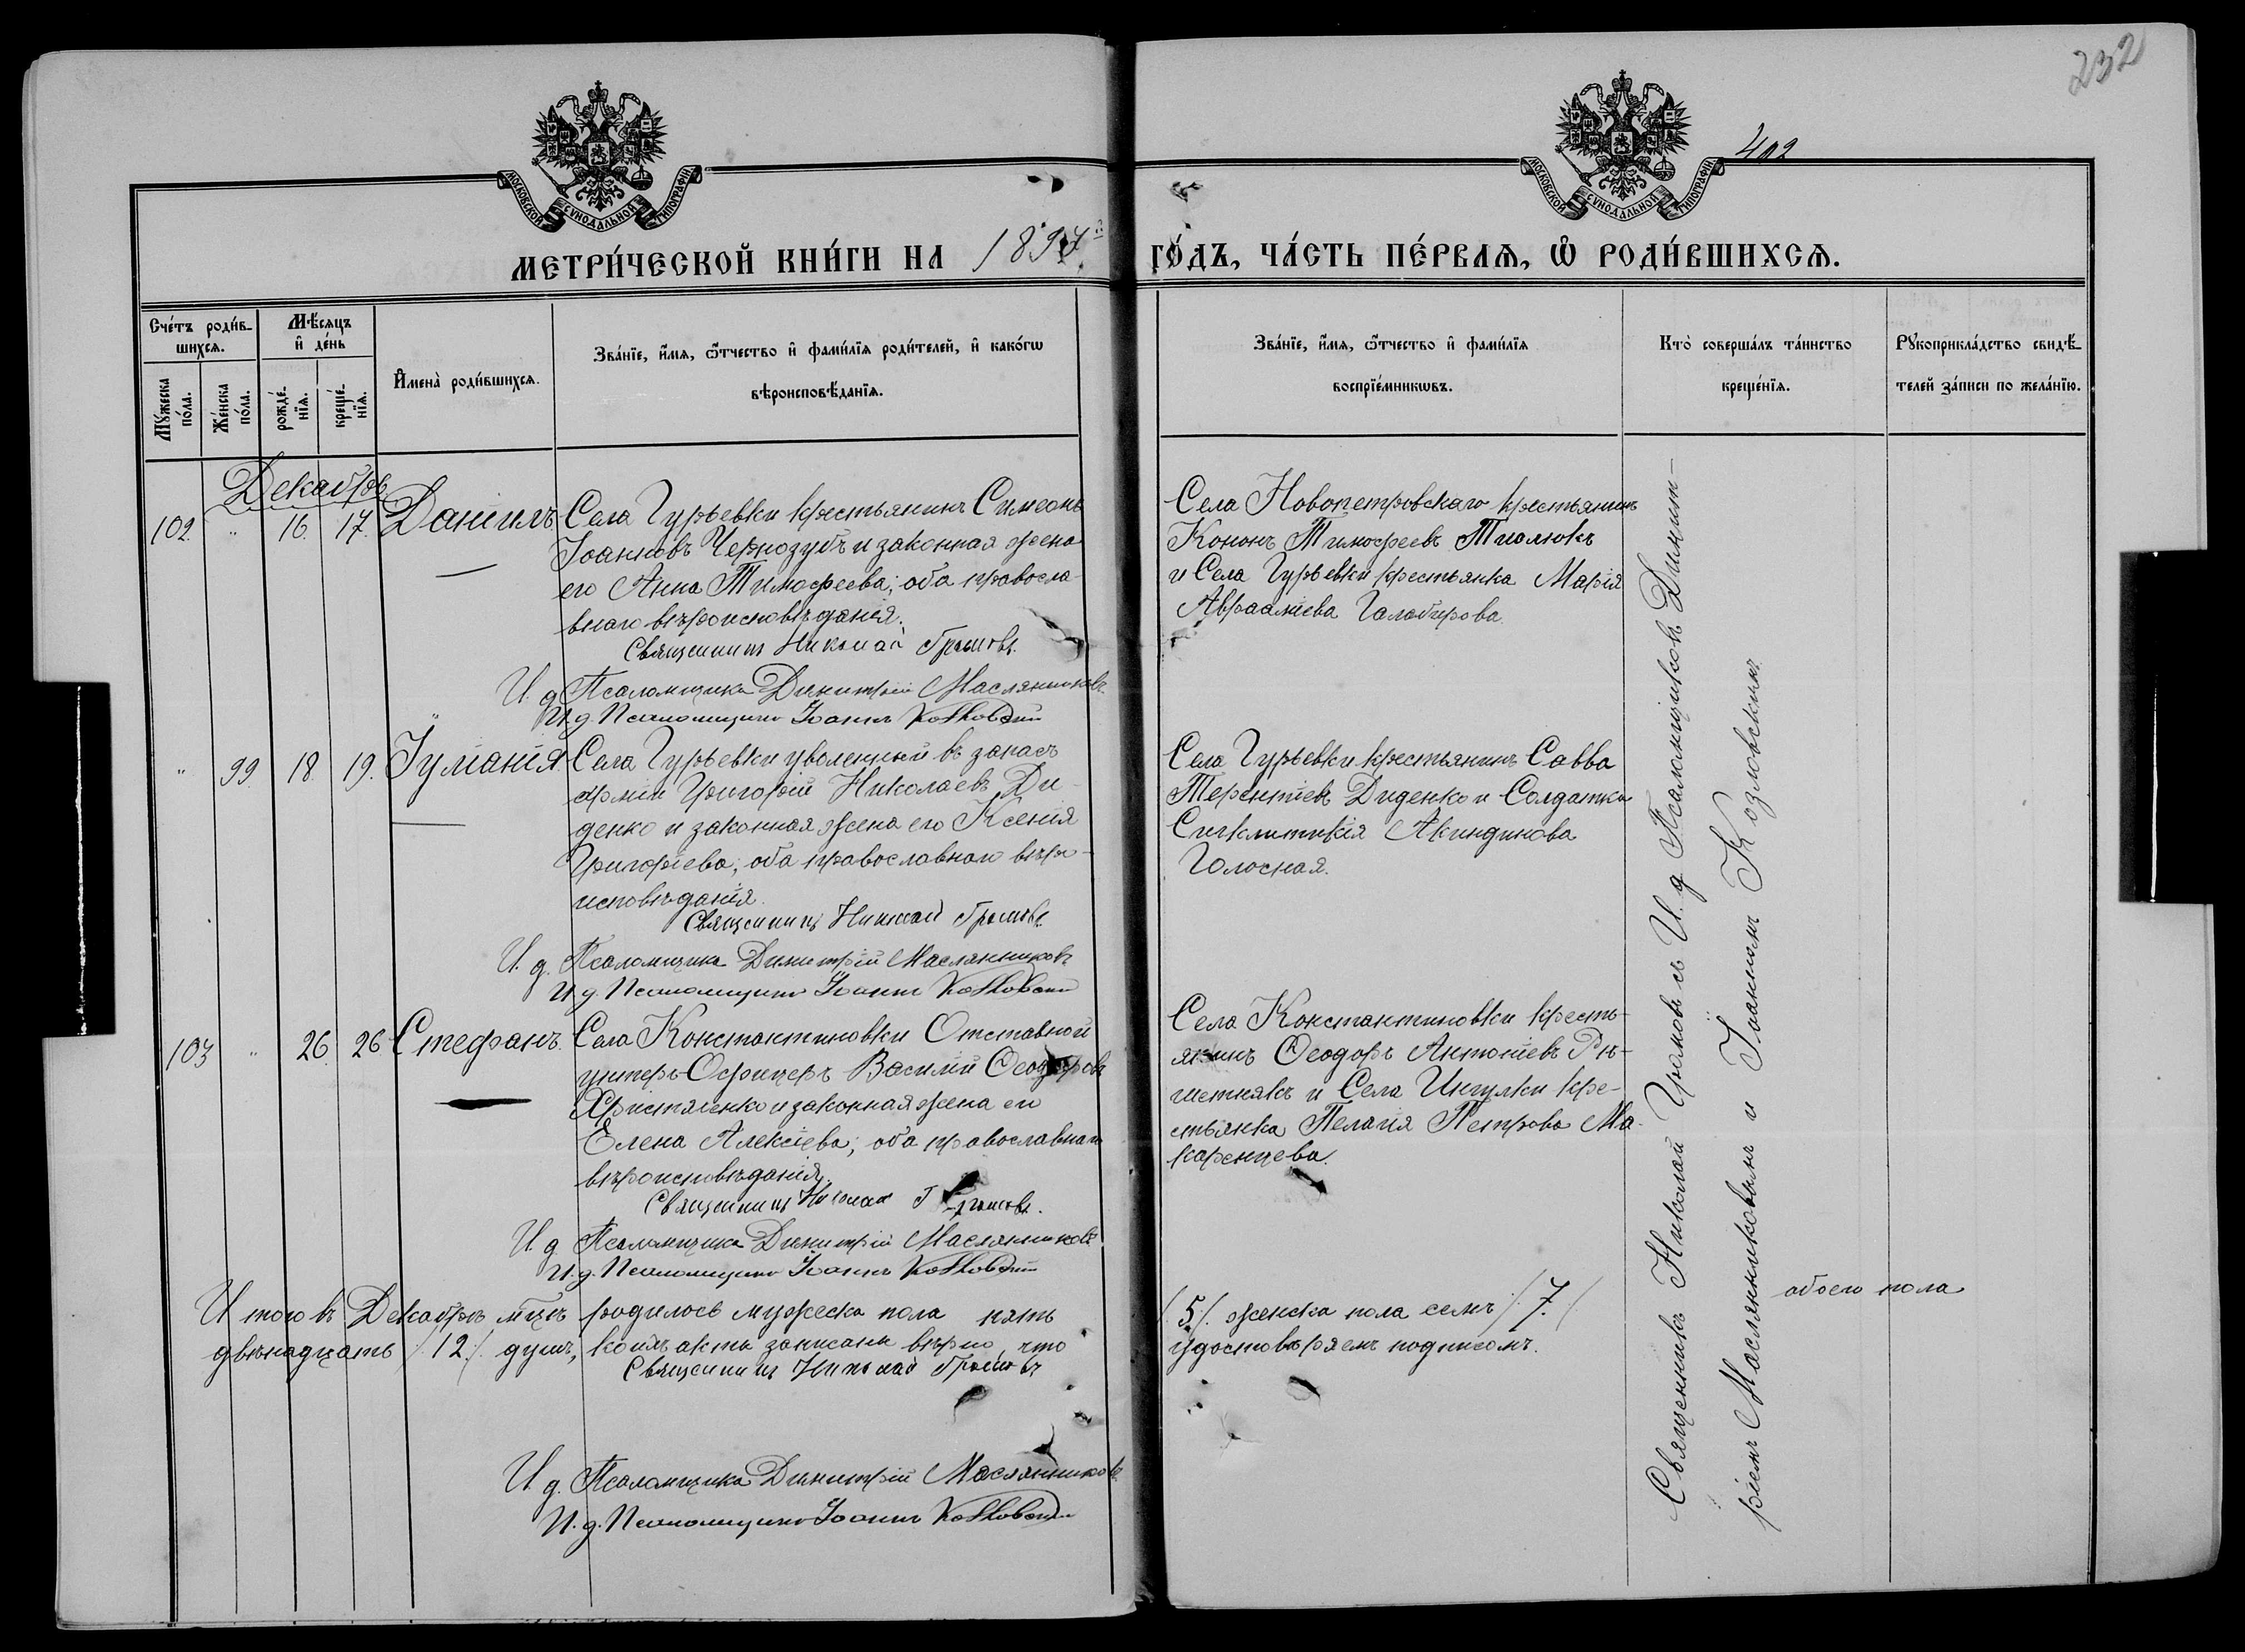 232
402
МОСКОВСКОЙ СУНОДАЛЬНОЙ ТИПОГРАФІИ
МОСКОВСКОЙ СУНОДАЛЬНОЙ ТИПОГРАФІИ
МЕТРИ́ЧЕСКОЙ КНИ́ГИ НА 1897й ГО́ДЪ, ЧА́СТЬ ПЕ́РВАѦ, Ѽ РОДИ́ВШИХСѦ.
Сче́тъ роди́в-
шихсѧ.
Мꙋ́жеска по́ла.
Же́нска по́ла.
Мѣ́сѧцъ и҆ де́нь
рожде́-
нїѧ.
креще́-
нїѧ.
И҆мена̀ роди́вшихсѧ.
Зва́нїе, и҆́мѧ, ѻ҆́тчество и҆ фами́лїѧ роди́телей, и҆ како́гѡ
вѣроисповѣ́данїѧ.
Зва́нїе, и҆́мѧ, ѻ҆́тчество и҆ фами́лїѧ
воспрїе́мникѡвъ.
Кто̀ соверша́лъ та́инство
креще́нїѧ.
Рꙋкоприкла́дство свидѣ́-
телей за́писи по жела́нїю.
Декабрь
102. " 16. 17. Даніилъ
Села Гурьевки крестьянинъ Симеонъ
Іоанновъ Чернозубъ и законная жена
его Анна Тимофеева; оба правосла-
внаго вѣроисповѣданія.
Священникъ Николай Громовъ.
И. д. Псаломщика Димитрій Маслянниковъ
И. д. Псаломщика Іоаннъ Козловскій
Села Новопетровскаго крестьянинъ
Кононъ Тимофеевъ
и Села Гурьевки крестьянка Марія
Авраамiева Галабирова.
" 99. 18. 19. Іуліанія.
Села Гурьевки уволенный въ запасъ
арміи Григорій Николаевъ Ди-
денко и законная жена его Ксенія
Григоріева; оба православнаго вѣро-
исповѣданія.
Священникъ Николай Громовъ
И. д. Псаломщика Димитрій Маслянниковъ
И. д. Псаломщика Іоаннъ Козловскій
Села Гурьевки крестьянинъ Савва
Терентіевъ Диденко и Солдатка
Синклитикія Акиндинова
Голосная.
103 " 26. 26 Стефанъ.
Села Константиновки Отставной
унтеръ-Офицеръ Василій Ѳеодоровъ
Христяченко и законная жена его
Елена Алексіева; оба православнаго
вѣроисповѣданія.
Священникъ Николай Громовъ.
И. д. Псаломщика Димитрій Маслянниковъ
И. д. Псаломщика Іоаннъ Козловскій
Села Константиновки кресть-
янинъ Ѳеодоръ Антоніевъ Рѣ-
шетнякъ и Села Ингулки кре-
стьянка Пелагія Петрова Ма-
каренцева.
Священникъ Николай Громовъ съ И. д. Псаломщиковъ Димит-
ріемъ Маслянниковымъ и Іоанномъ Козловскимъ
Итого въ Декабрѣ мцѣ родилось мужеска пола пять /.5./ женска пола семь /.7./ обоего пола
двѣнадцать /.12./ душъ, коихъ акты записаны вѣрно, что удостовѣряемъ подписомъ.
Священникъ Николай Громовъ
И. д. Псаломщика Димитрій Маслянниковъ
И. д. Псаломщика Іоаннъ Козловскій